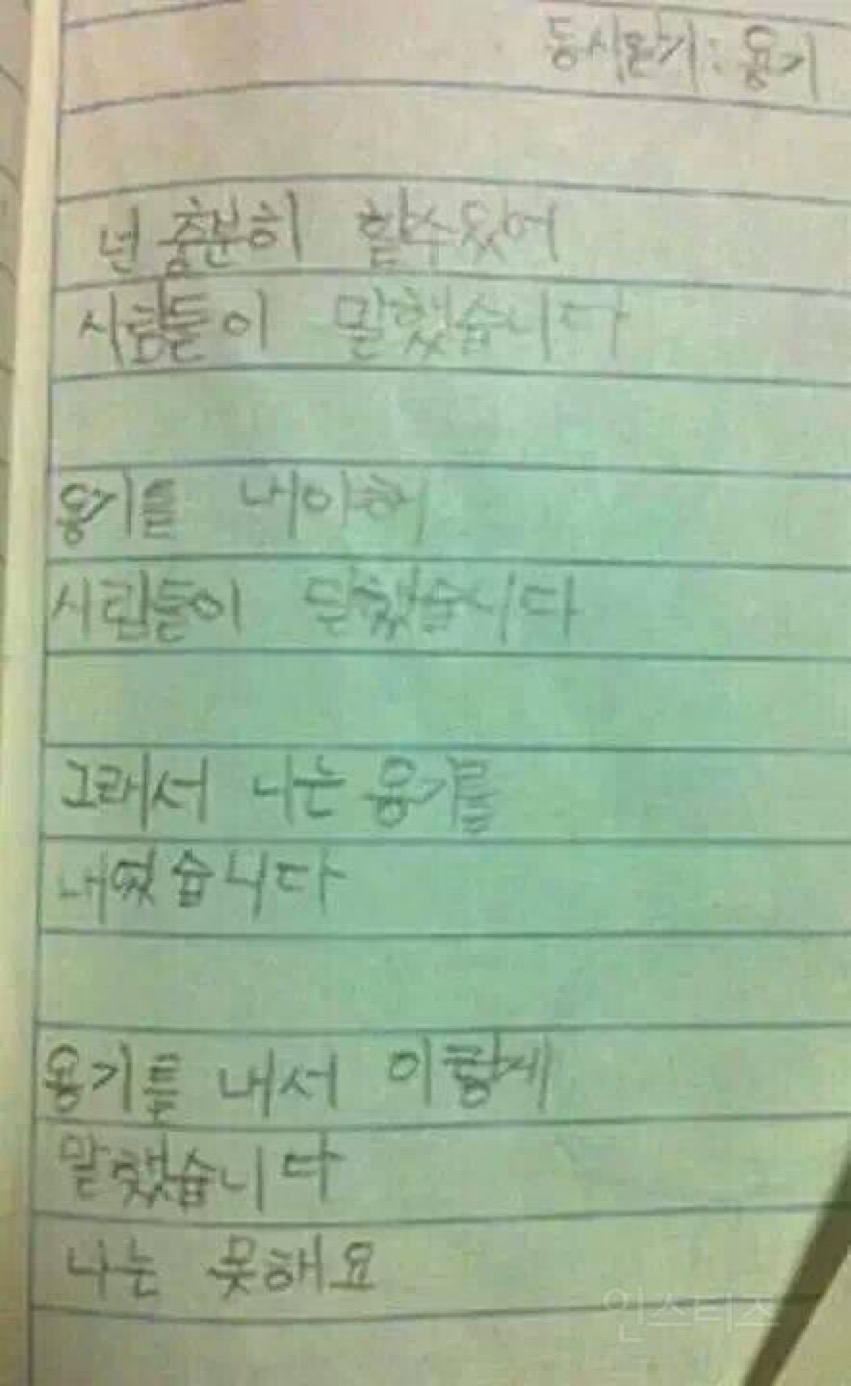 동시짓기: 용기
넌 충분히 할수있어
사람들이 말했습니다
용기를 내야해
사람들이 말했습니다
그래서 나는 용기를
내었습니다
용기를 내서 이렇게
말했습니다
나는 못해요
인스티즈